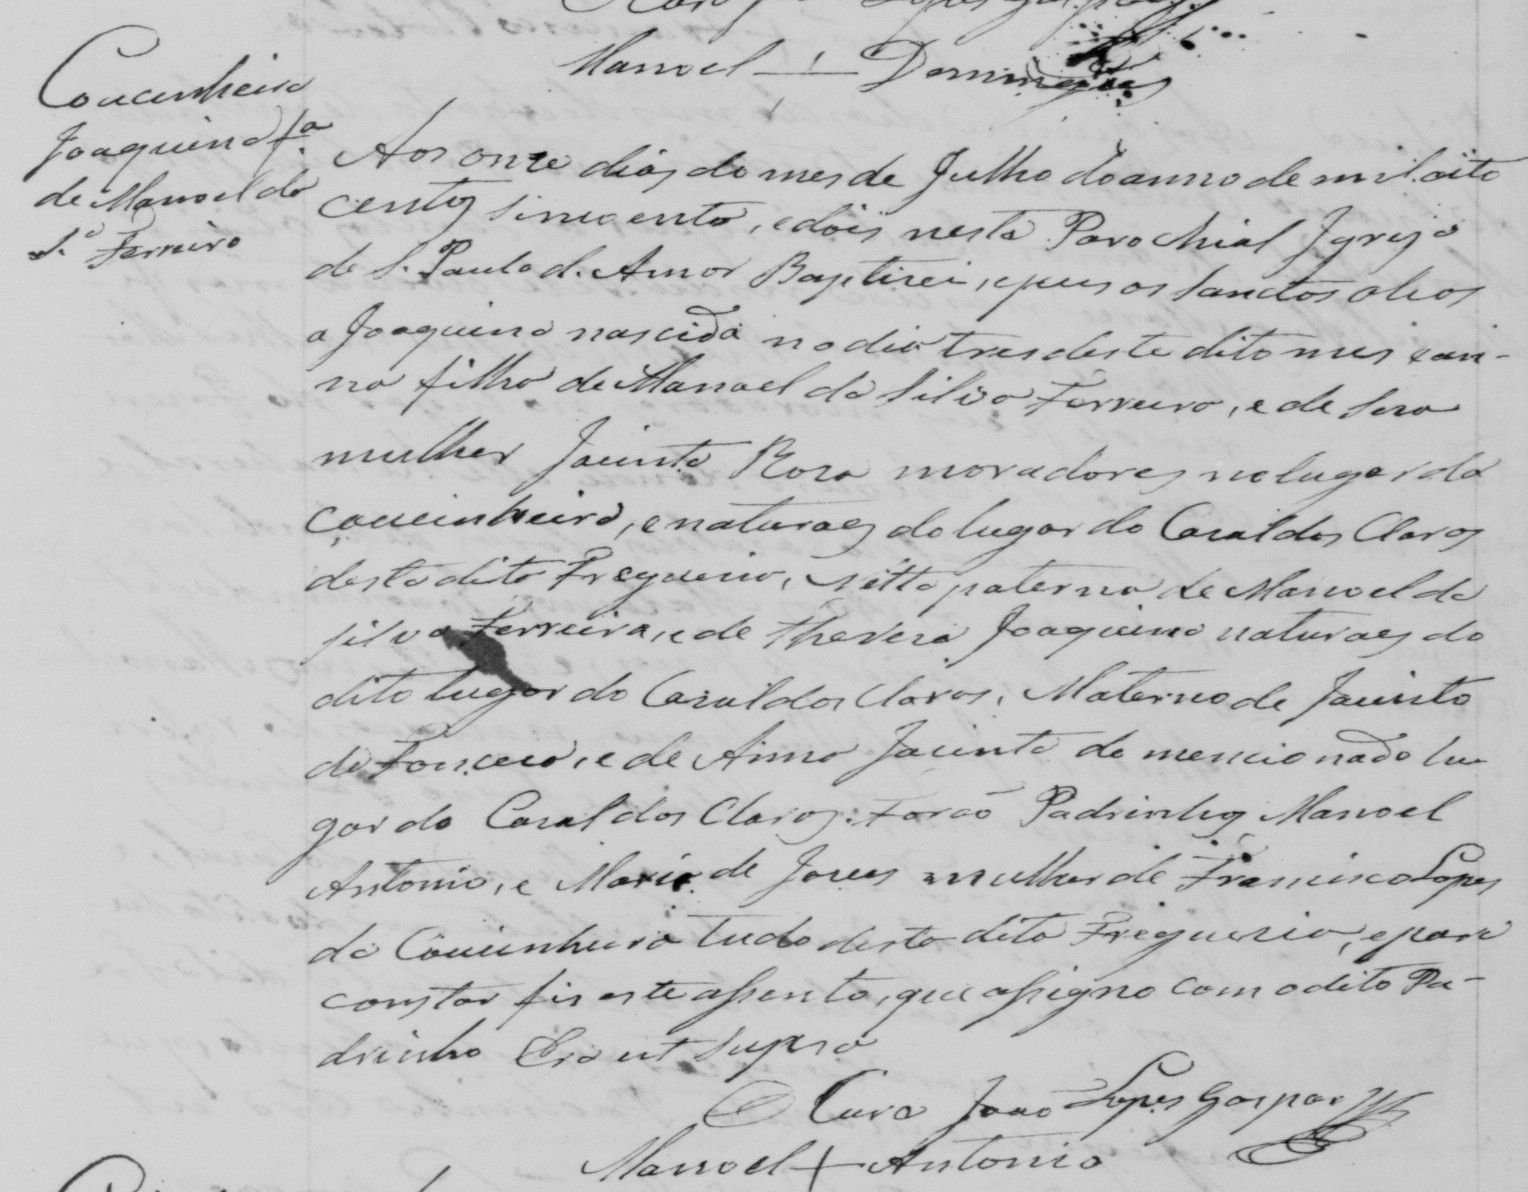 Manoel + Domingues
Coucinheira
Joaquina f.a
de Manoel da
S.a Ferreiro
Aos onze dias do mes de Julho do anno de mil oito
centos sincoenta, e dois nesta Parochial Igreja
de S. Paulo d. Amor Baptizei, e pus os Sanctos oleos
a Joaquina nascida no dia tres deste dito mes e an-
no filha de Manoel da Silva Ferreiro, e de Sua
mulher Jacinta Roza moradores no lugar da
Coucinheira, e naturaes do lugar do Casal dos Claros
desta dita Freguezia, Netta paterna de Manoel da
Silva Ferreira, e de Thereza Joaquina naturaes do
dito lugar do Casal dos Claros, Materna de Jacinto
da Fonceca, e de Anna Jacinta do mencionado lu
gar do Casal dos Claros: Forão Padrinhos Manoel
Antonio, e Maria de Jezus mulher de Francisco Lopes
da Coucinheira tudo desta dita Freguezia, e para
constar fis este assento, que assigno com o dito Pa-
drinho Era ut supra
O Cura João Lopes Gaspar
Manoel + Antonio